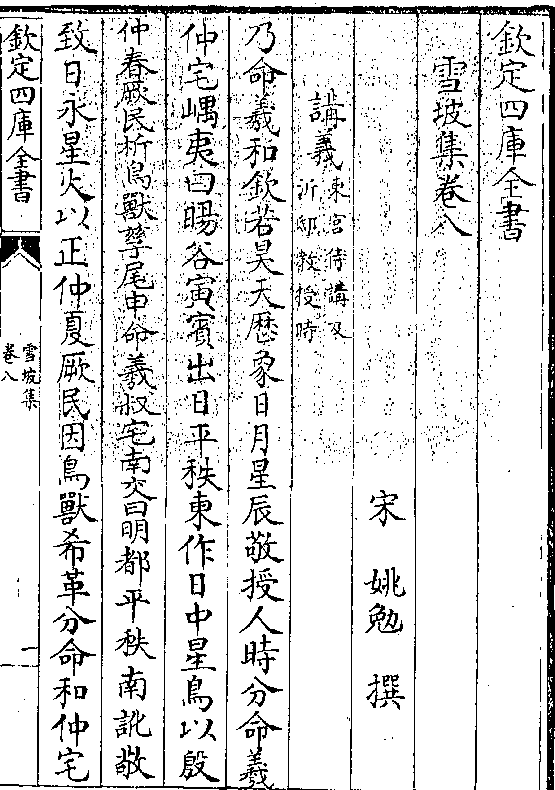 欽定四庫全書
雪坡集卷八
宋 姚勉 撰
講義東宫侍講及
沂邸教授時
乃命羲和欽若昊天厯象日月星辰敬授人時分命羲
仲宅嵎夷曰暘谷寅賓出日平秩東作日中星鳥以殷
仲春厥民析鳥獸孳尾申命羲叔宅南交曰明都平秩南訛敬
致日永星火以正仲夏厥民因鳥獸希革分命和仲宅
欽定四庫全書
雪坡集
卷八
一